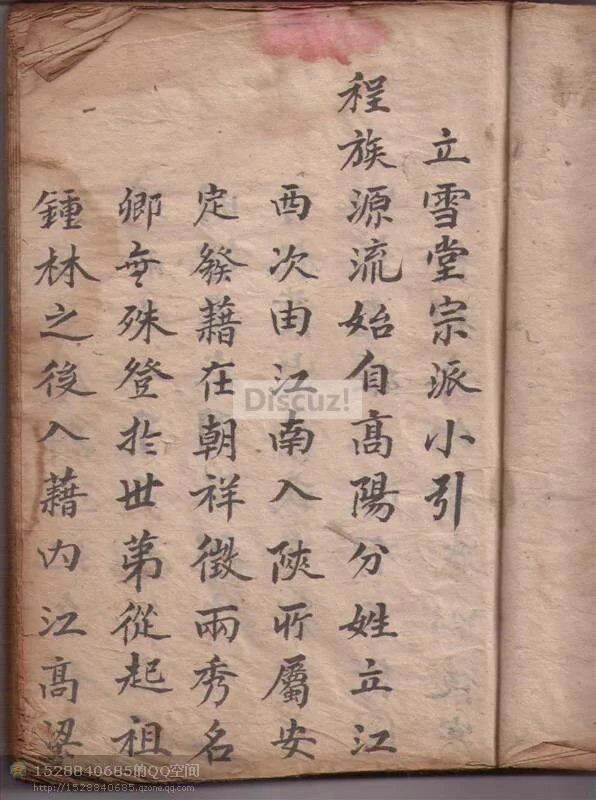 立雪堂宗派小引
程族源流始自高陽分姓立江
西次由江南入陝所屬安
定發藉在朝祥徵兩秀名
卿無殊登於世第從起祖
鍾林之後入藉內江高梁
Discuz!
1528840685的QQ空间
http://1528840685.qzone.qq.com